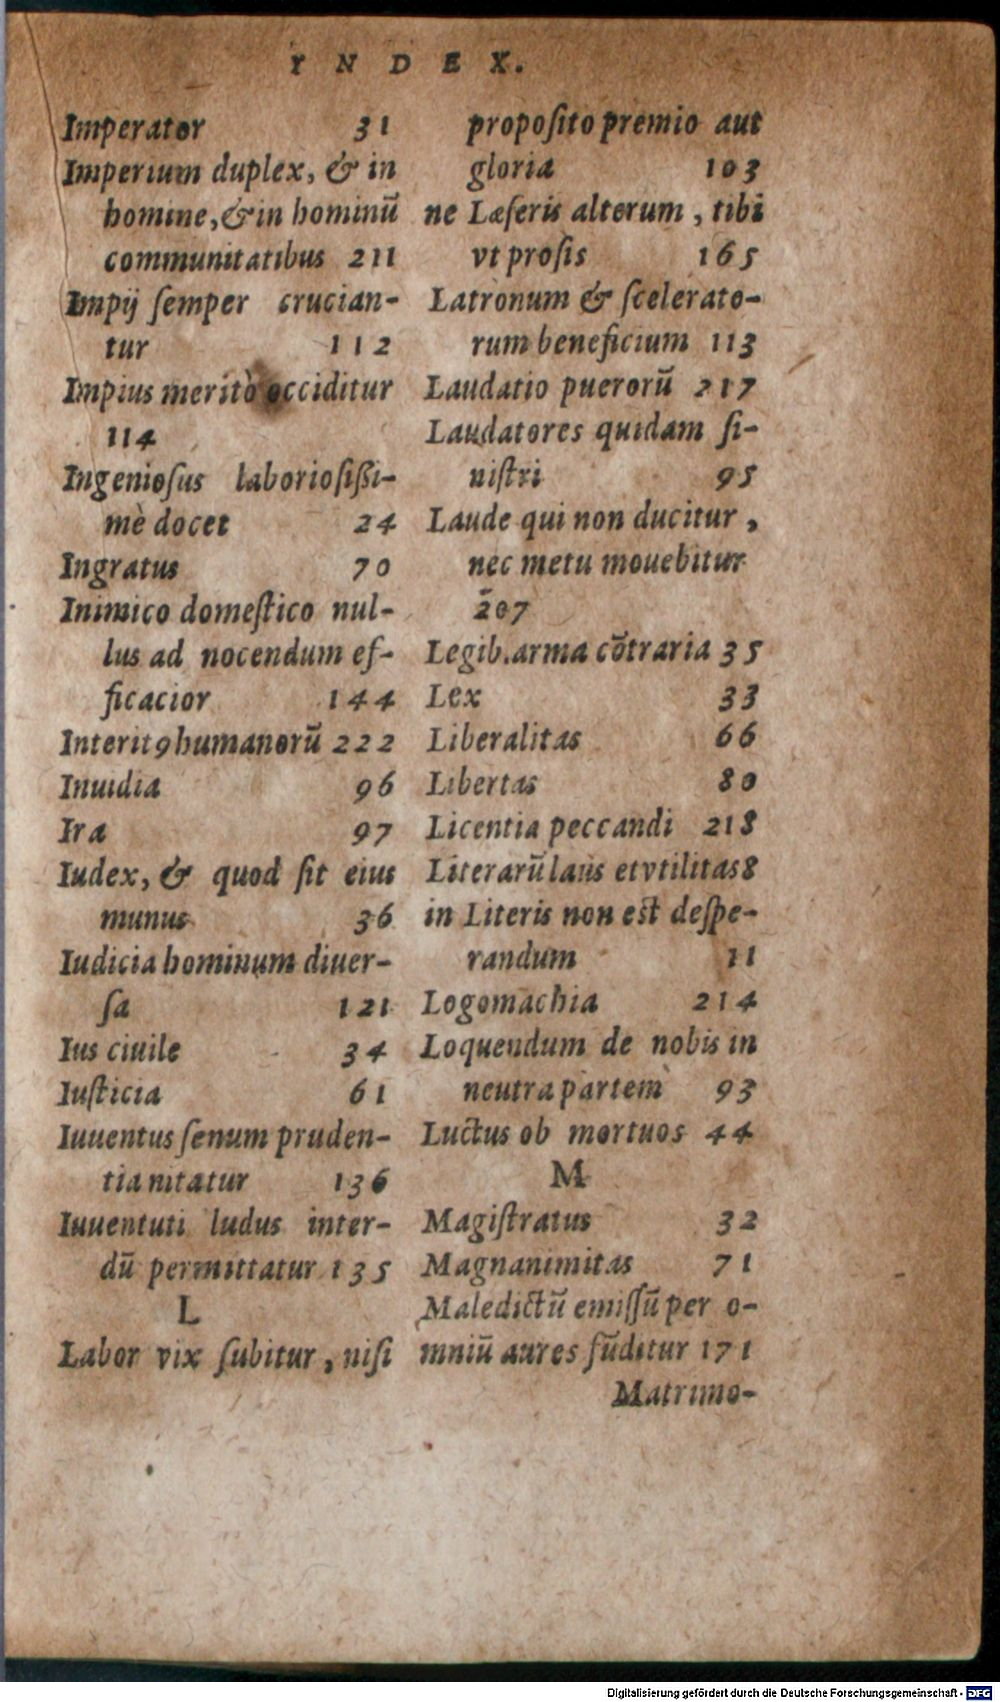 YNDEX.
Imperator 31
Imperium duplex, & in
homine, & in hominū
communitatibus 211
Impij ſemper crucian-
tur 112
Impius meritò occiditur
114
Ingenioſus laborioſißi-
mè docet 24
Ingratus 70
Inimico domeſtico nul-
lus ad nocendum ef-
ficacior 144
Interit9 humanorū 222
Inuidia 96
Ira 97
Iudex, & quod ſit eius
munus 36
Iudicia hominum diuer-
ſa 121
Ius ciuile 34
Iuſticia 61
Iuuentus ſenum pruden-
tia nitatur 136
Iuuentuti ludus inter-
dū permittatur 135
L
Labor vix ſubitur, niſi
propoſito premio aut
gloria 103
ne Læſeris alterum, tibi
vt proſis 165
Latronum & ſcelerato-
rum beneficium 113
Laudatio puerorū 217
Laudatores quidam ſi-
niſtri 95
Laude qui non ducitur,
nec metu mouebitur
207
Legib. arma cōtraria 35
Lex 33
Liberalitas 66
Libertas 80
Licentia peccandi 218
Literarū laus et vtilitas 8
in Literis non eſt deſpe-
randum 11
Logomachia 214
Loquendum de nobis in
neutra partem 93
Luctus ob mortuos 44
M
Magiſtratus 32
Magnanimitas 71
Maledictū emiſſū per o-
mniū aures fūditur 171
Matrimo-
Digitalisierung gefördert durch die Deutsche Forschungsgemeinschaft - DFG